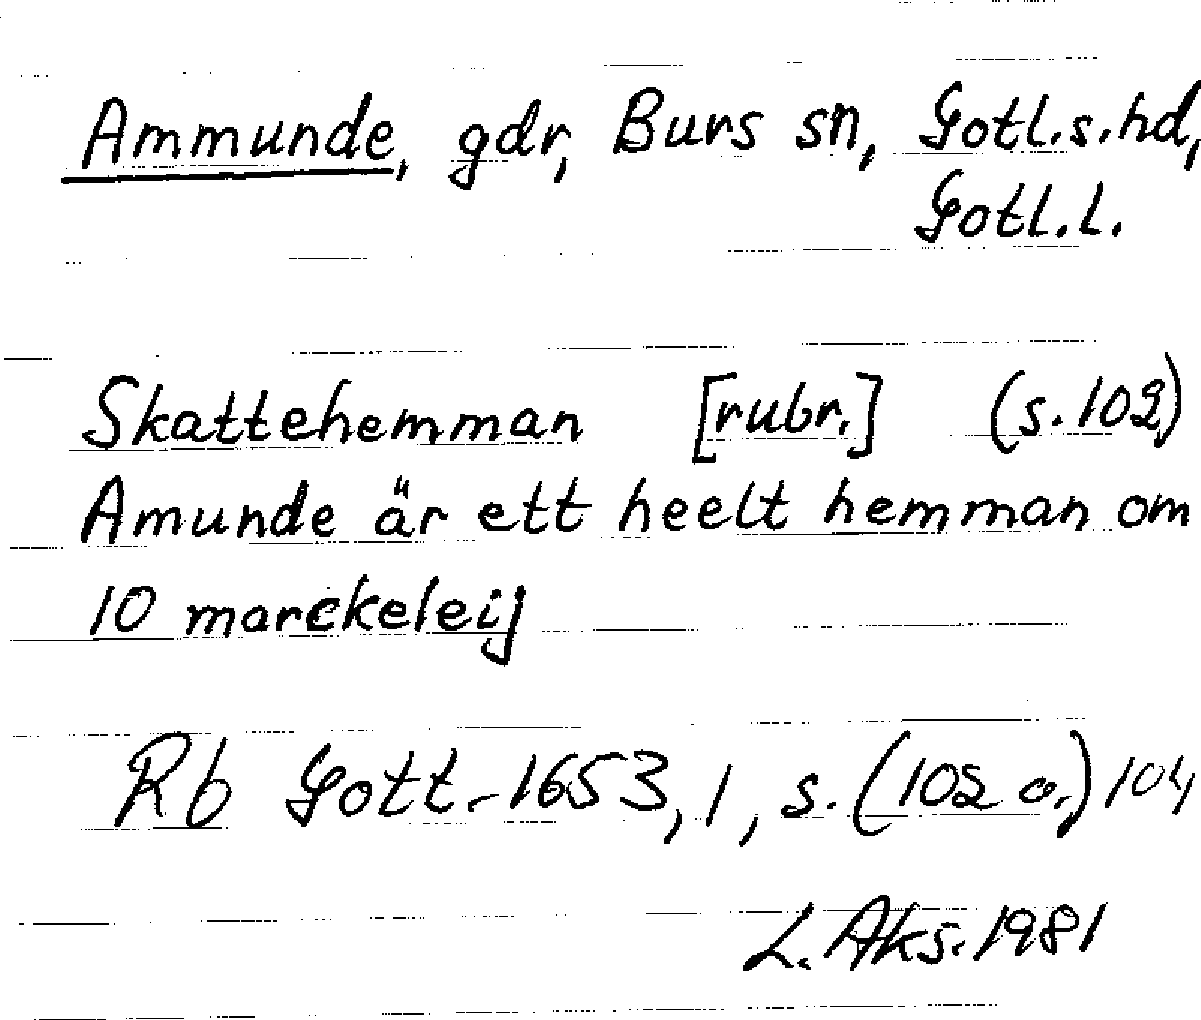 Ammunde, gdr, Burs sn, Gotl.s.hd,
Gotl.l.
Skattehemman [rubr.] (s.102)
Amunde är ett heelt hemman om
10 marckeleij
Rb Gotl. 1653, 1, s. (102 o.) 104
L. Aks. 1981